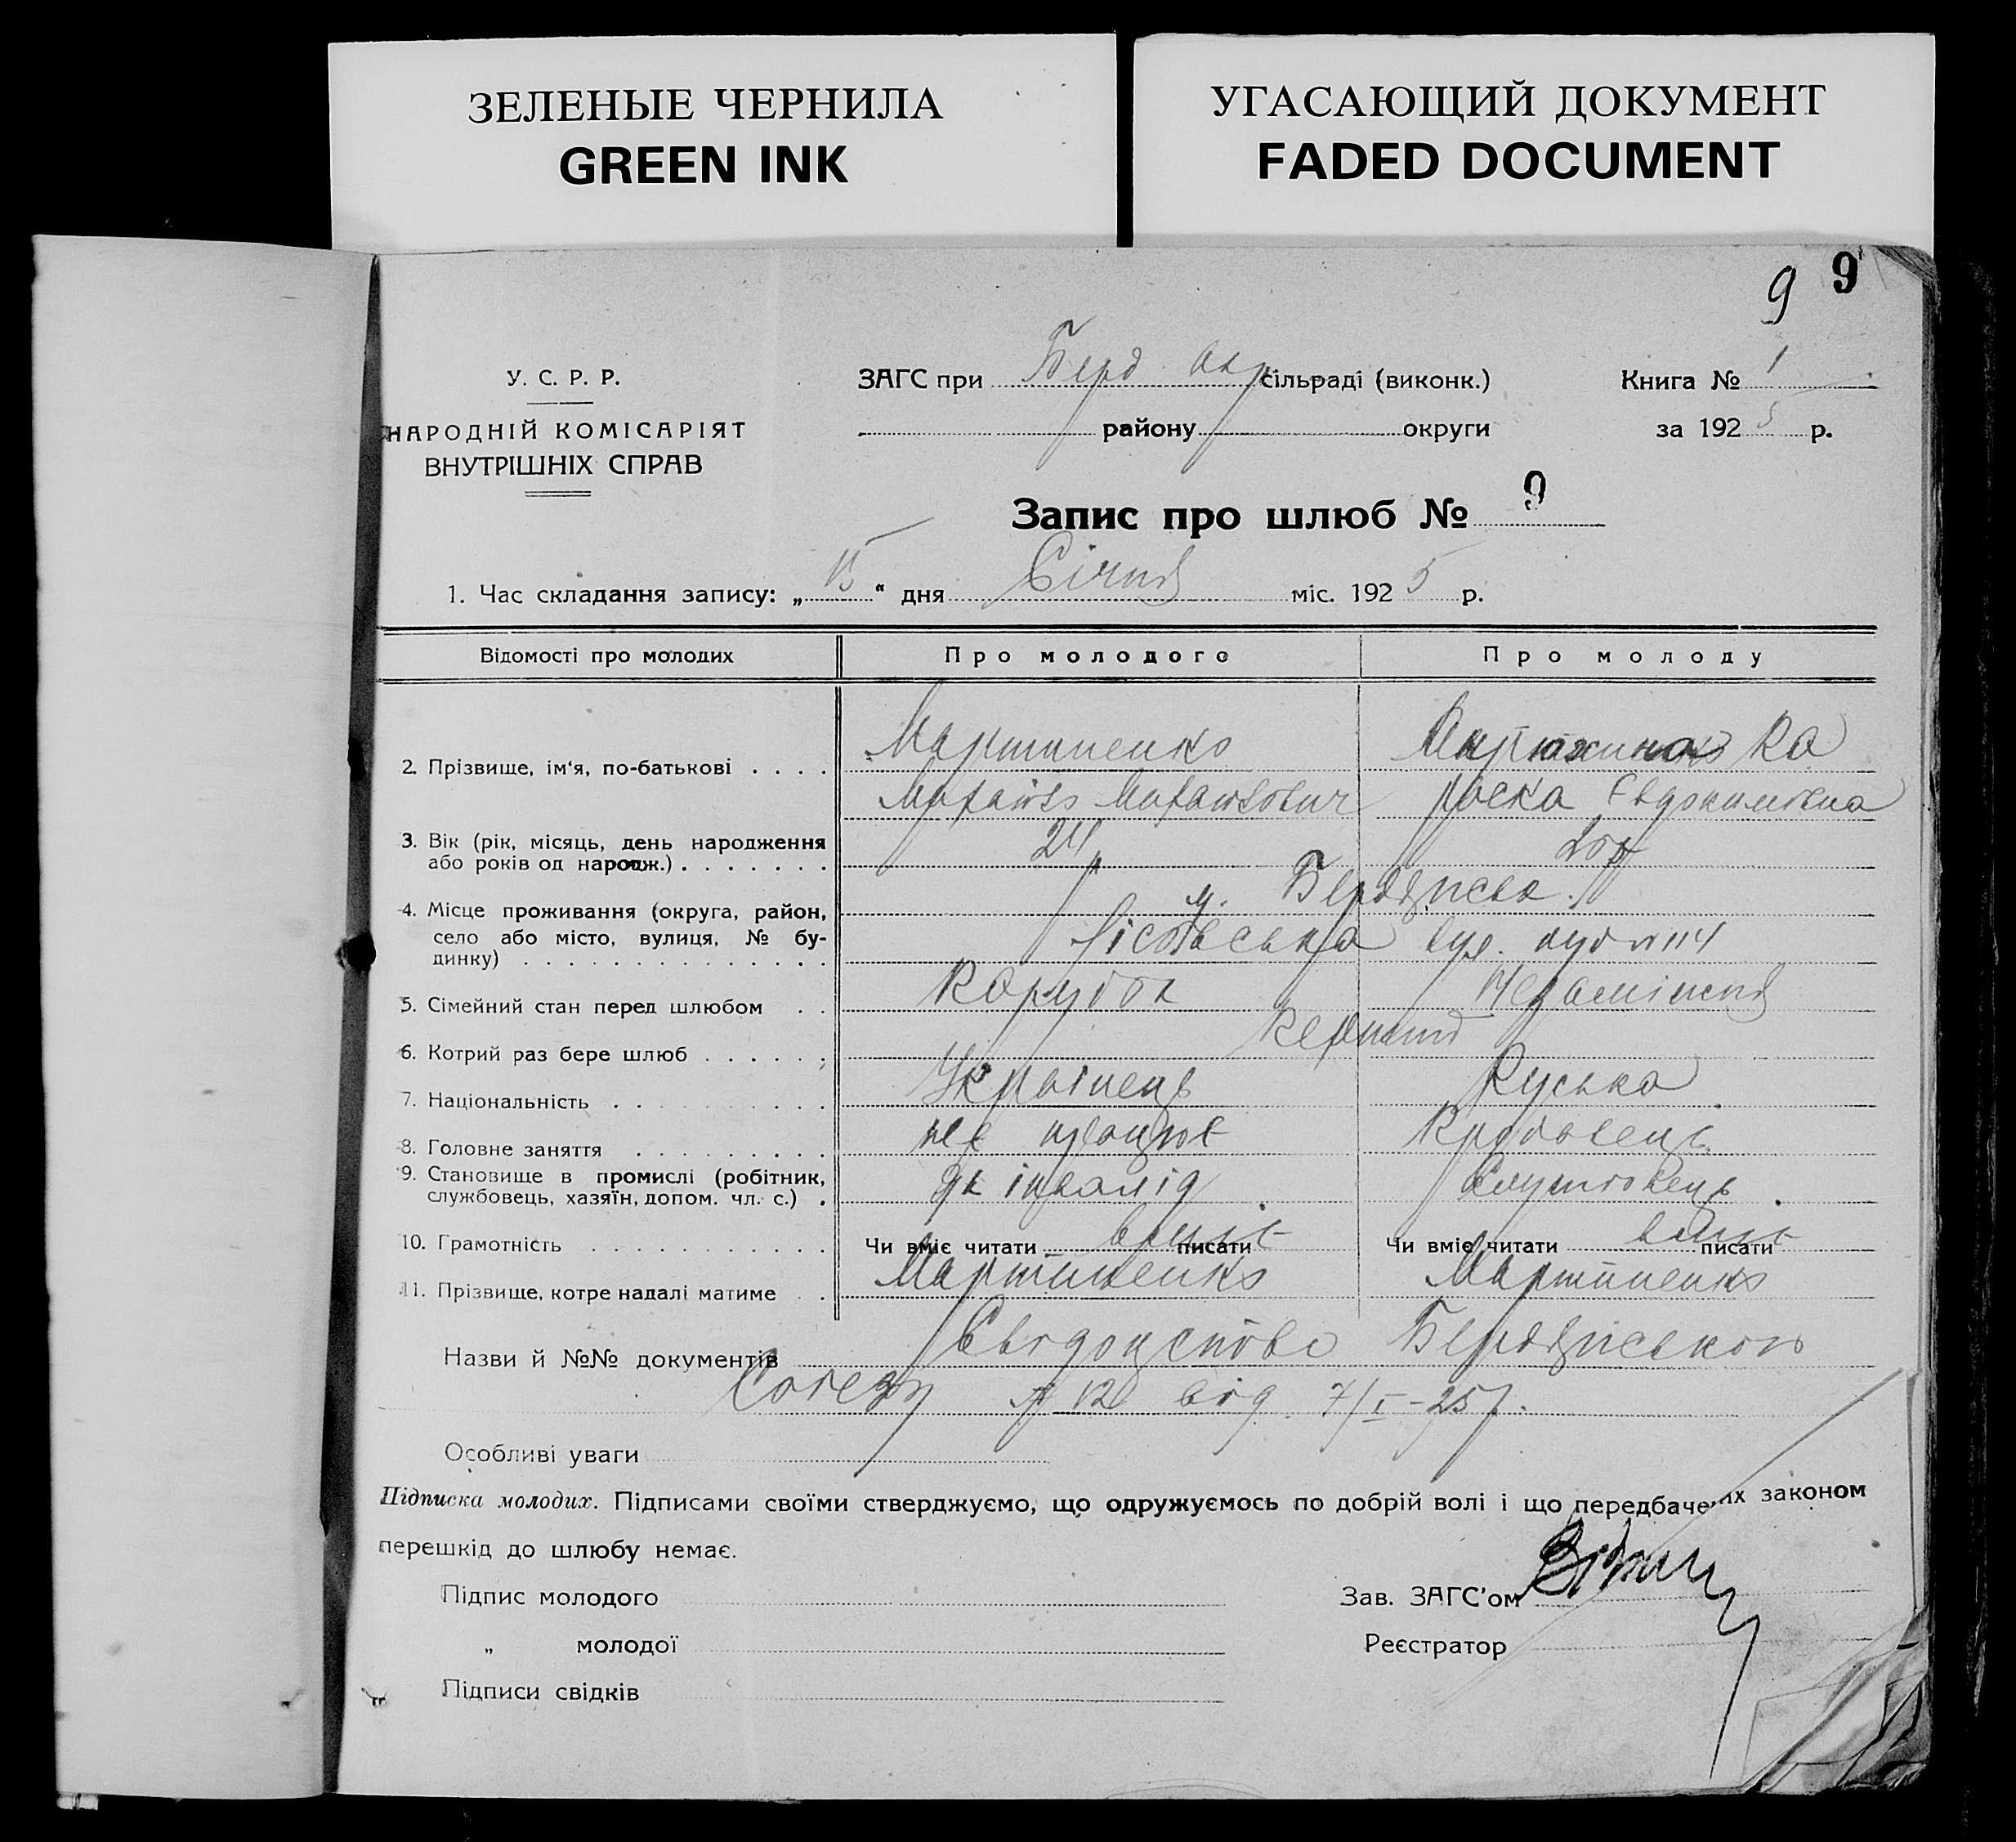 ЗЕЛЕНЫЕ ЧЕРНИЛА
GREEN INK
УГАСАЮЩИЙ ДОКУМЕНТ
FADED DOCUMENT
9 9
У. С. Р. Р.
НАРОДНІЙ КОМІСАРІЯТ
ВНУТРІШНІХ СПРАВ
ЗАГС при Берд окр сільраді (виконк.)
району округи
Книга № 1
за 1925 р.
Запис про шлюб № 9
1. Час складання запису: „15“ дня Січня міс. 1925 р.
Відомості про молодих Про молодого Про молоду
2. Прізвище, ім'я, по-батькові . . . . Мартиненко
Євдокимовна
3. Вік (рік, місяць, день народження
або років од народж.) . . . . . . . 24 р 20 р
4. Місце проживання (округа, район,
село або місто, вулиця, № бу-
динку) . . . . . . . . . . . . . .
м. Бердянськ.
вул.
5. Сімейний стан перед шлюбом . . Парубок Незаміжня
6. Котрий раз бере шлюб . . . . . . Перший
7. Національність . . . . . . . . . . Українець Руська
8. Головне заняття . . . . . . . . . не працює
9. Становище в промислі (робітник,
службовець, хазяїн, допом. чл. с.) . як інвалід Службовець.
10. Грамотність . . . . . . . . . . . Чи вміє читати вміє писати Чи вміє читати вміє писати
11. Прізвище, котре надалі матиме . . Мартиненко Мартиненко
Назви й №№ документів Бердянського
№ 12 від 7/I-25 р.
Особливі уваги
Підписка молодих. Підписами своїми стверджуємо, що одружуємось по добрій волі і що передбачених законом
перешкід до шлюбу немає.
Підпис молодого
„ молодої
Підписи свідків
Зав. ЗАГС'ом
Реєстратор